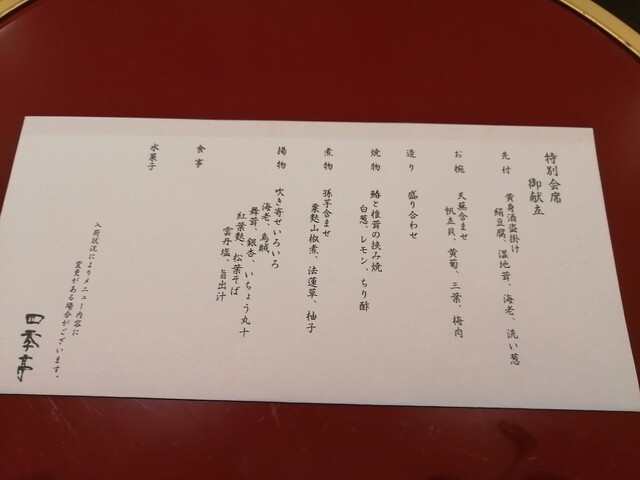 特別会席
御献立
先付 黄身酒盗掛け
絹豆腐、湿地茸、海老、洗い葱
お椀 天葉含ませ
帆立貝、黄菊、三葉、梅肉
造り 盛り合わせ
焼物 鰆と椎茸の挟み焼
白葱、レモン、ちり酢
煮物 孫芋含ませ
粟麩山椒煮、法蓮草、柚子
揚物 吹き寄せいろいろ
海老、烏賊、
舞茸、銀杏、いちょう丸十
紅葉麩、松葉そば
雲丹塩、旨出汁
食事
水菓子
入荷状況によりメニュー内容に
変更がある場合がございます。
四季亭